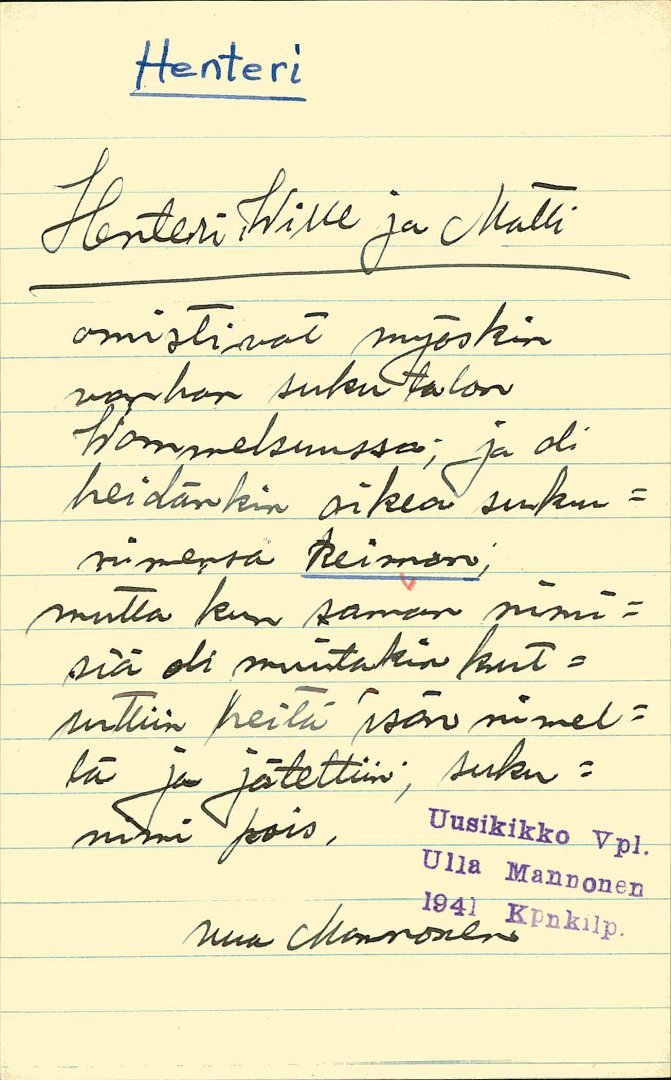 Henteri
Henteri, Wille ja Matti
omistivat myöskin
vanhan sukutalon
Wammelsuussa; ja oli
heidänkin oikea suku=
nimensä Keiman;
mutta kun saman nimi=
siä oli muitakin kut=
suttiin heitä isän nimel=
tä ja jätettiin; suku=
nimi pois.
Ulla Mannonen
Uusikikko Vpl.
Ulla Mannonen
1941 Kpnkilp.